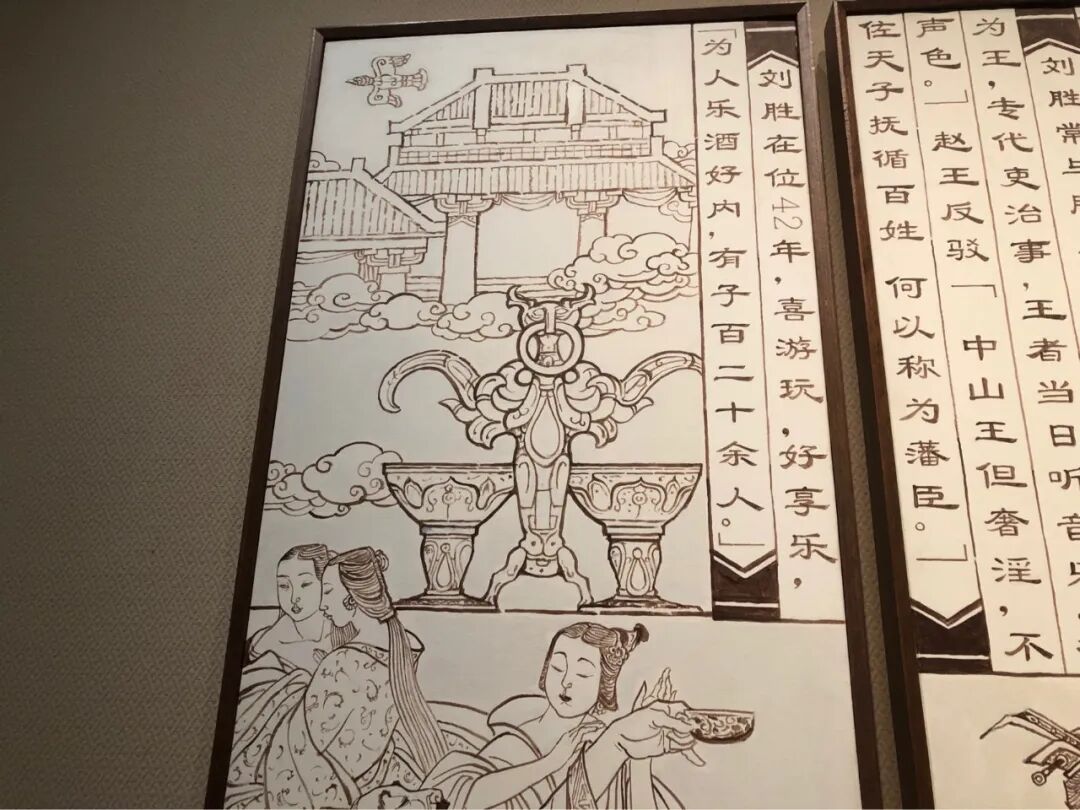 刘胜在位42年，喜游玩，好享乐，
「为人乐酒好内，有子百二十余人。」
刘胜常与
为王，专代吏治事，王者当日听音
声色。」赵王反驳「中山王但奢淫，不
佐天子抚循百姓 何以称为藩臣。」